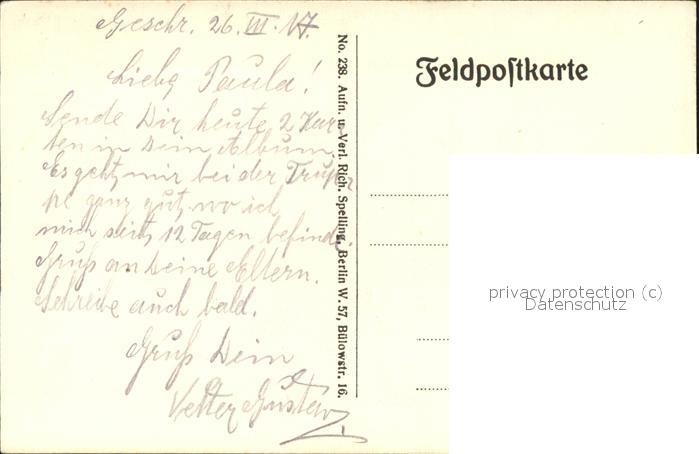 Geschr. 26. III. 17.
Liebe Paula!
Sende Dir heute 2 Kar-
ten in Dein Album.
Es geht mir bei der Trup-
pe ganz gut, wo ich
mich seit 12 Tagen befinde.
Gruß an Deine Eltern.
Schreibe auch bald.
Gruß Dein
Vetter Gustav
No. 238. Aufn. u. Verl. Rich. Spelling, Berlin W. 57, Bülowstr. 16.
Feldpostkarte
privacy protection (c)
Datenschutz